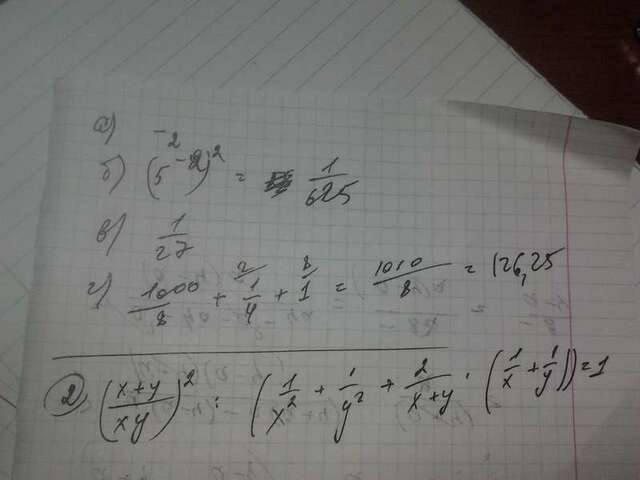 а) -2
б) (5^{-2})^2 = 1/625
в) 1/27
г) 1000/8 + 1/4 + 1/1 = 1010/8 = 126,25
2) ((x+y)/(xy))^2 : (1/x^2 + 1/y^2 + 2/(x+y) · (1/x + 1/y)) = 1